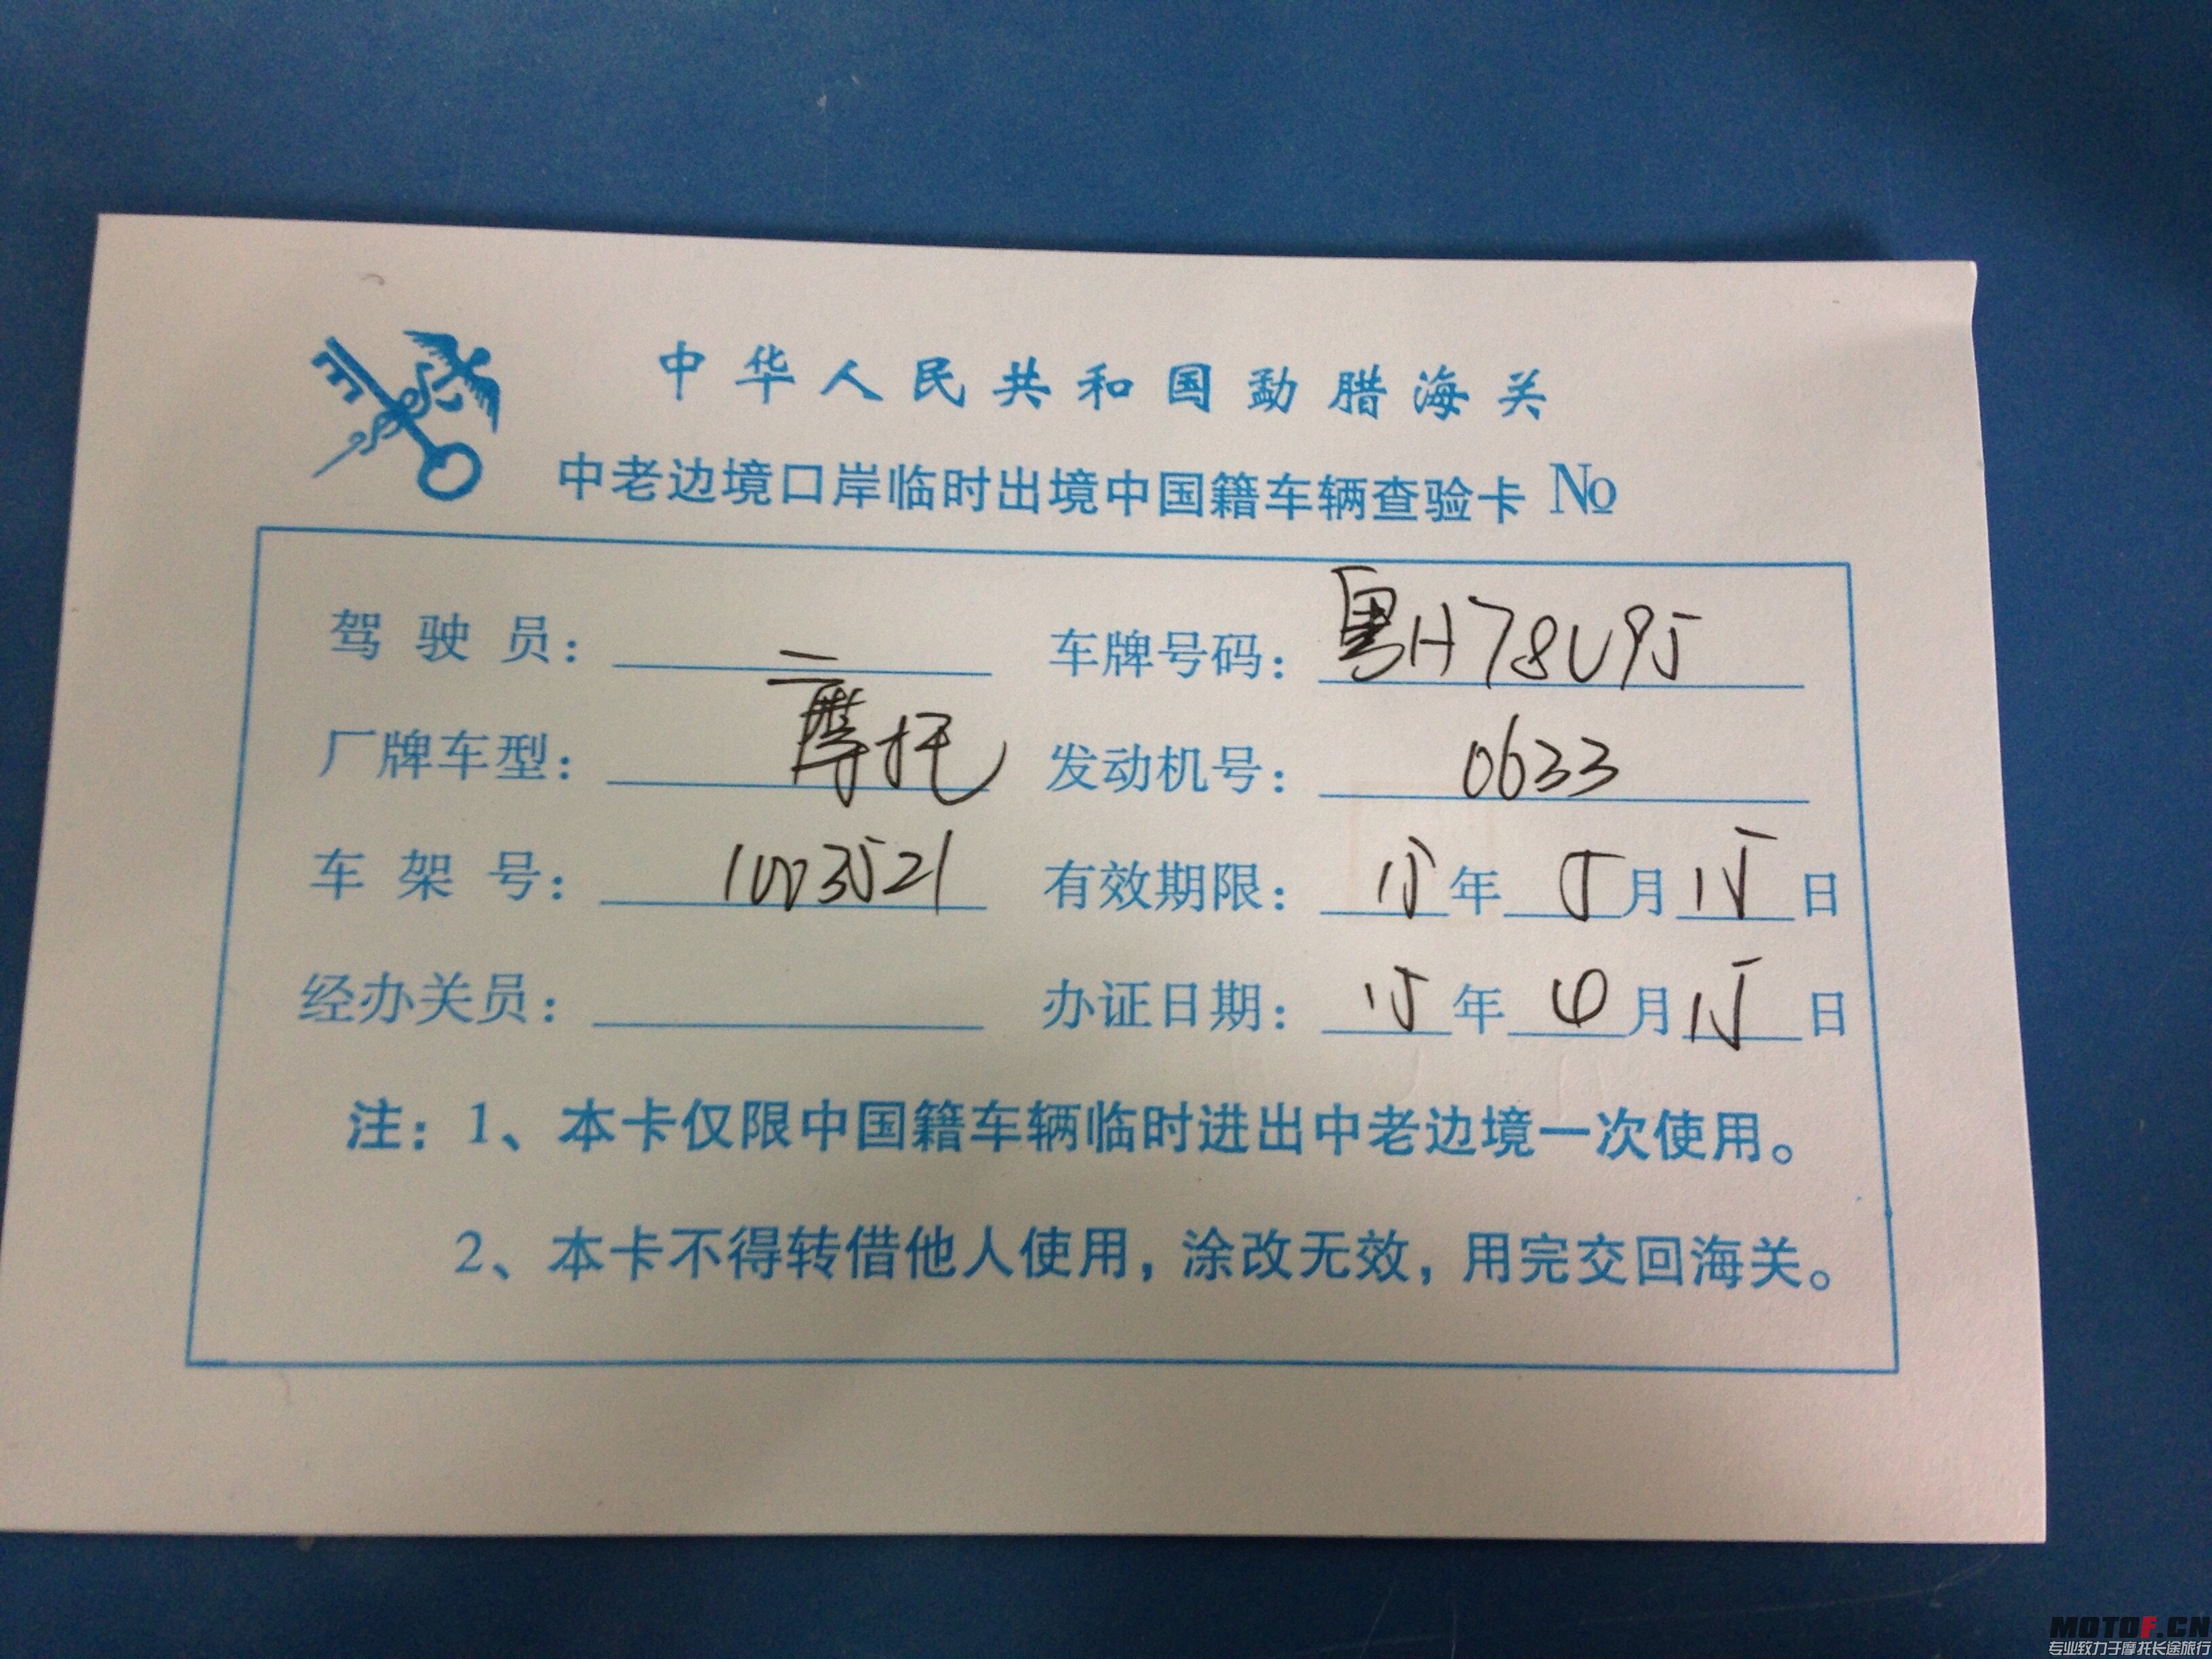 中华人民共和国勐腊海关
中老边境口岸临时出境中国籍车辆查验卡 No
驾驶员： 车牌号码：粤H78U95
厂牌车型：二摩托 发动机号：0633
车架号：1003521 有效期限：15年5月15日
经办关员： 办证日期：15年4月15日
注：1、本卡仅限中国籍车辆临时进出中老边境一次使用。
2、本卡不得转借他人使用，涂改无效，用完交回海关。
MOTOF.CN
专业致力于摩托长途旅行